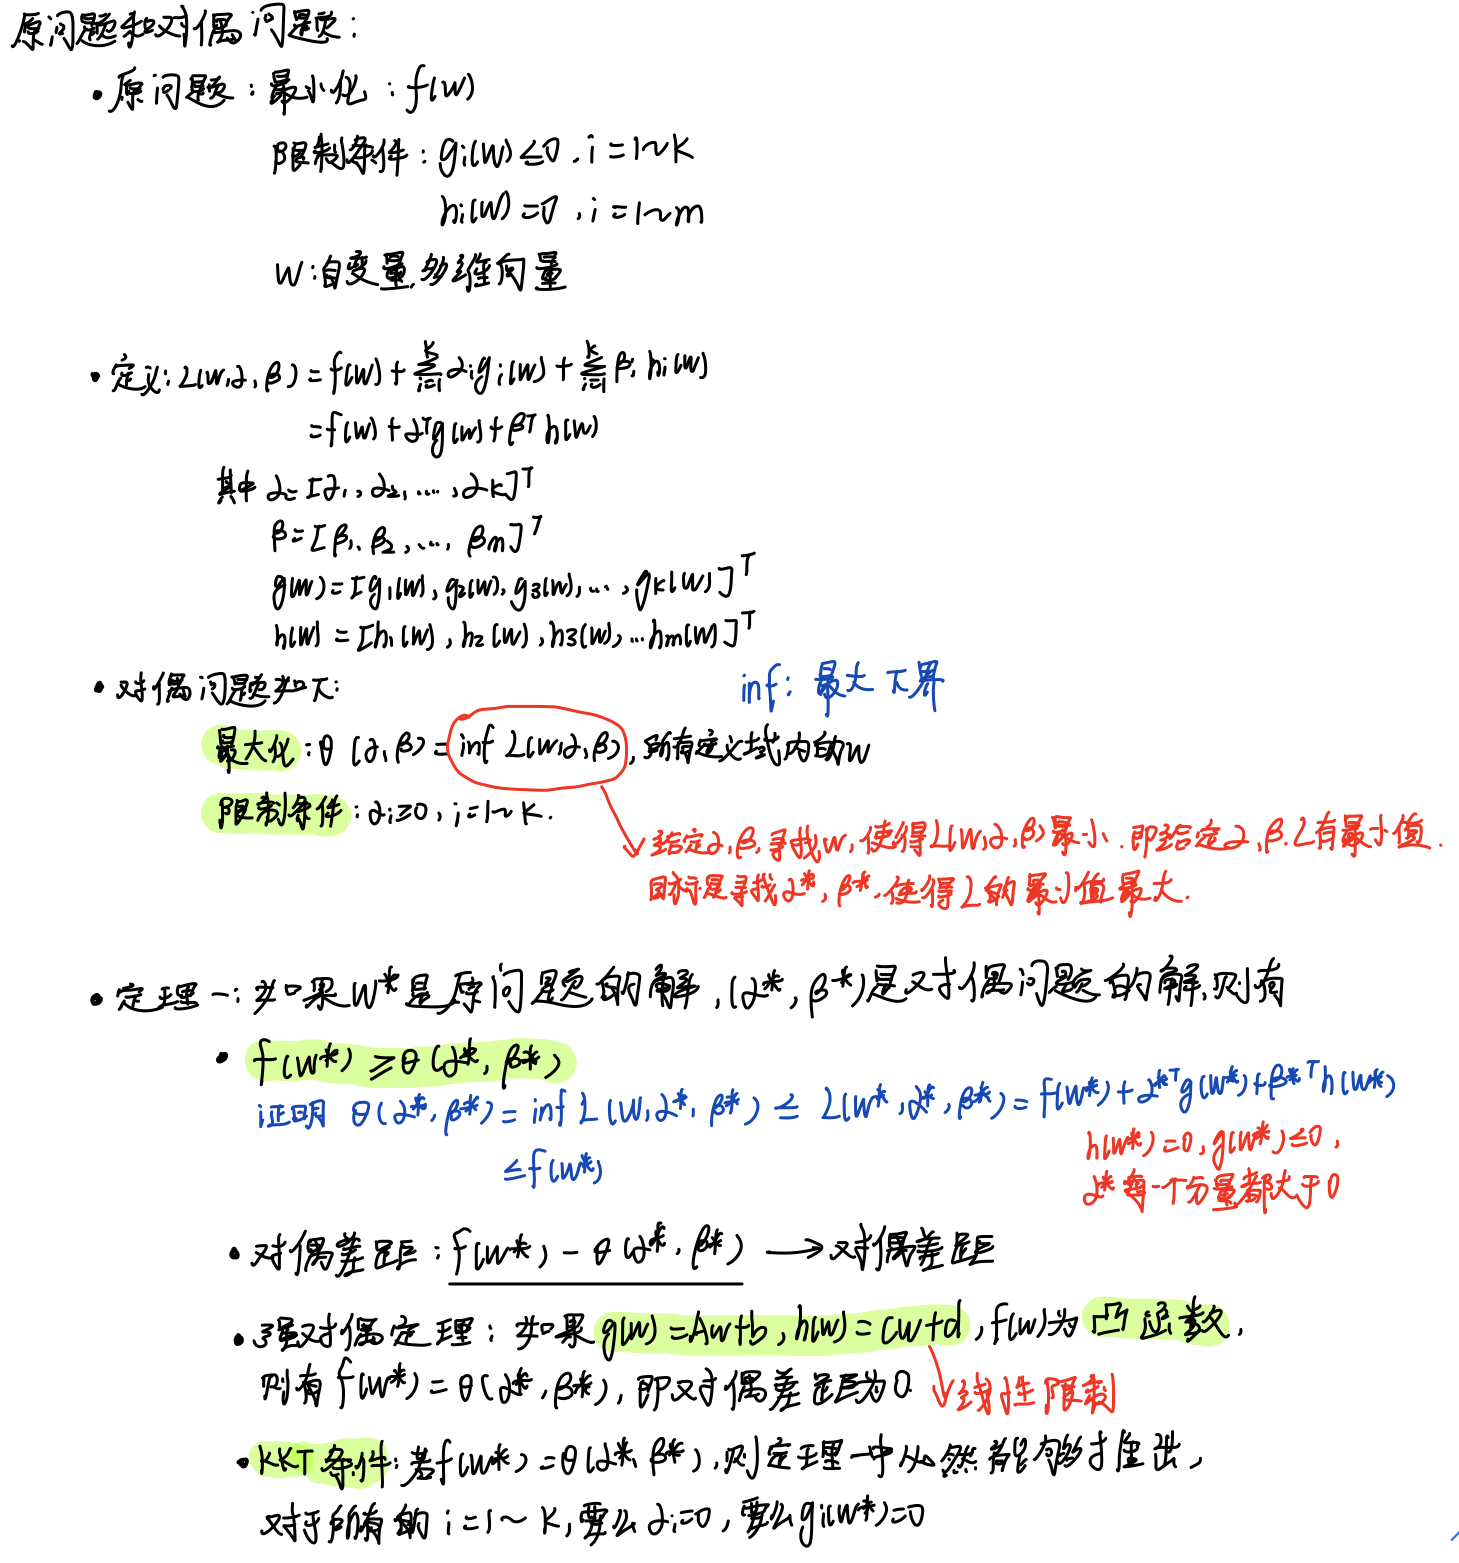 原问题和对偶问题：
• 原问题：最小化：f(w)
限制条件：gi(w)≤0，i=1~K
hi(w)=0，i=1~m
w：自变量，多维向量
• 定义：L(w,α,β)=f(w)+∑_{i=1}^{K}αigi(w)+∑_{i=1}^{K}βihi(w)
=f(w)+α^Tg(w)+β^Th(w)
其中 α=[α1,α2,…,αK]^T
β=[β1,β2,…,βm]^T
g(w)=[g1(w),g2(w),g3(w),…,gK(w)]^T
h(w)=[h1(w),h2(w),h3(w),…hm(w)]^T
• 对偶问题如下：
inf：最大下界
最大化：θ(α,β)=inf L(w,α,β)，所有定义域内的w
限制条件：αi≥0，i=1~K.
给定α,β,寻找w,使得L(w,α,β)最小.即给定α,β.L有最小值.
目标是寻找α*,β*,使得L的最小值最大.
• 定理一：如果w*是原问题的解，(α*,β*)是对偶问题的解，则有
• f(w*)≥θ(α*,β*)
证明 θ(α*,β*)=inf L(w,α*,β*)≤L(w*,α*,β*)=f(w*)+α*^Tg(w*)+β*^Th(w*)
≤f(w*)
h(w*)=0,g(w*)≤0,
α*每一个分量都大于0
• 对偶差距：f(w*)-θ(α*,β*)→对偶差距
• 强对偶定理：如果g(w)=Aw+b,h(w)=Cw+d,f(w)为凸函数,
则有f(w*)=θ(α*,β*),即对偶差距为0.
线性限制
• KKT条件：若f(w*)=θ(α*,β*),则定理一中必然能够推出,
对于所有的i=1~K,要么αi=0,要么gi(w*)=0